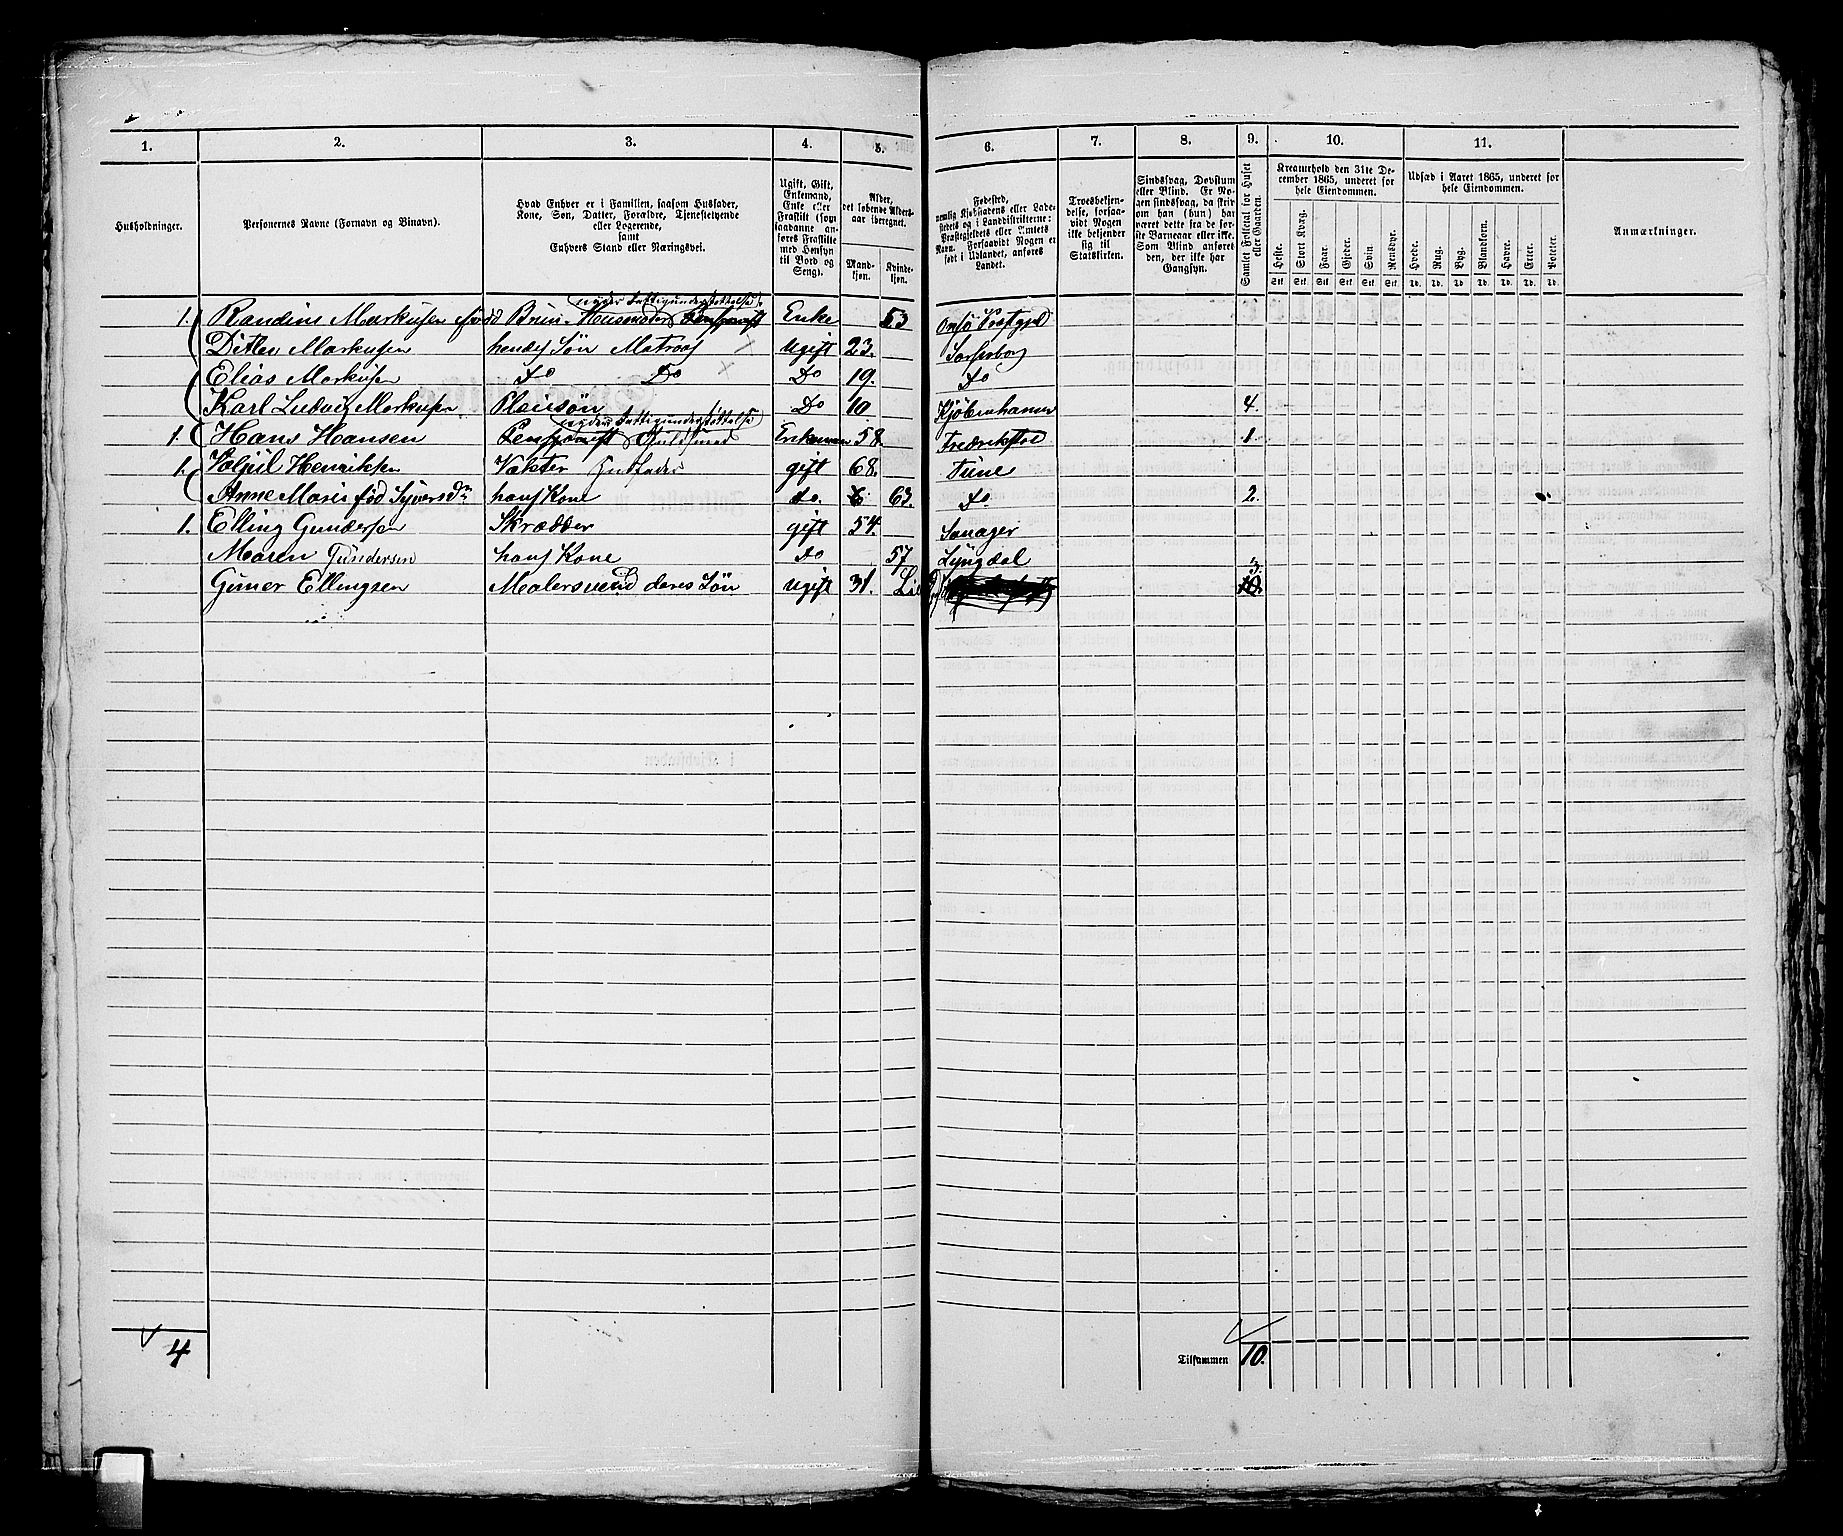 1. 2. 3. 4. 5. 6. 7. 8. 9. 10. 11.
Husholdninger.
Personernes Navne (Fornavn og Binavn).
Hvad Enhver er i Familien, saasom Husfader, Kone, Søn, Datter, Forældre, Tjenestetyende eller Logerende, samt Enhvers Stand eller Næringsvei.
Ugift, Gift, Enkemand, Enke eller Fraskilt (som saadanne anføres Fraskilte med Hensyn til Bord og Seng).
Alder, det løbende Alders-aar iberegnet.
Mand-kjøn. Kvinde-kjøn.
Fødested, nemlig Kjøbstadens eller Ladestedets og i Landdistrikterne: Præstegjeldets eller Amtets Navn. Forsaavidt Nogen er født i Udlandet, anføres Landet.
Troesbekjendelse, forsaavidt Nogen ikke bekjender sig til Statskirken.
Sindssvag, Døvstum eller Blind. Er Nogen sindssvag, da skriv om han (hun) har været dette fra de første Barneaar eller ikke. Som Blind anføres den, der ikke har Gangsyn.
Samlet Folketal for Huset eller Gaarden.
Kreaturhold den 31te December 1865, underet for hele Eiendommen.
Heste. Stort Kvæg. Faar. Gjeder. Svin. Rensdyr.
Stk. Stk. Stk. Stk. Stk. Stk.
Udsæd i Aaret 1865, underet for hele Eiendommen.
Hvede. Rug. Byg. Blandkorn. Havre. Erter. Poteter.
Td. Td. Td. Td. Td. Td. Td.
Anmærkninger.
nyder Fattigunderstøttelse
1. Randine Markusen född Brun Husmoder Enke 53 Onsö Præstgjd
Ditlev Markusen hendes Søn Matros ugift 23. Sarpsborg
Elias Markusen Do Do Do 19. Do
Karl Ludvig Markusen Pleiesøn Do 10 Kjöbenhavn 4.
nyder Fattigunderstøttelse
1. Hans Hansen Guldsmed Enkeman 58. Fredrikstad 1.
1. Henriksen Vækter Husfader gift 68. Tune
Anne Marie fød Syversdr hans Kone do. 63. Do. 2.
1. Elling Gundersen Skrædder gift 54.
Maren Gundersen hans Kone Do 57 Lyngdal
Guner Ellingsen Malersvend deres Søn ugift 31. 3. 10.
4
Tilsammen 10.